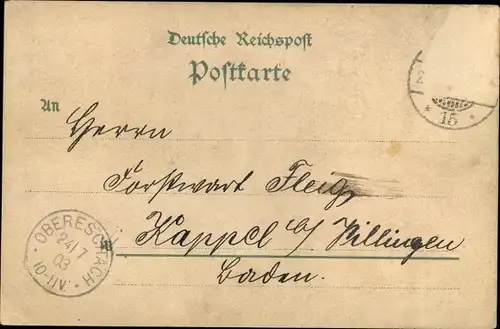 Deutsche Reichspost
Postkarte
An
Herrn
Forstwart Flug
Kappel b/ Villingen
Baden.
OBERESCHACH
24/7
03
10-11V.
* 15 *